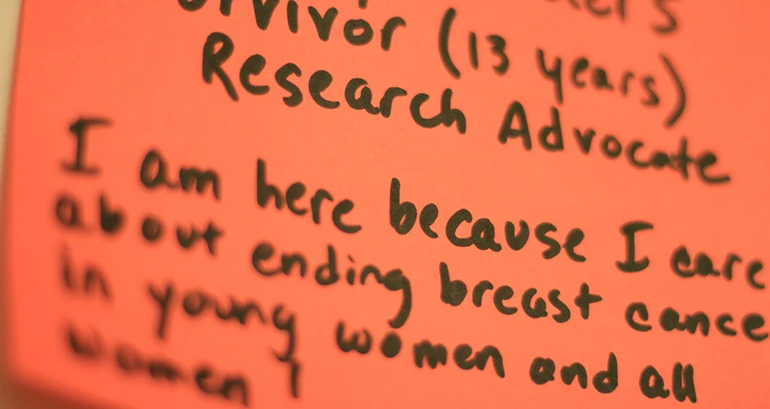 (13 years)
Research Advocate
I am here because I care
about ending breast cance
in young women and all
women!